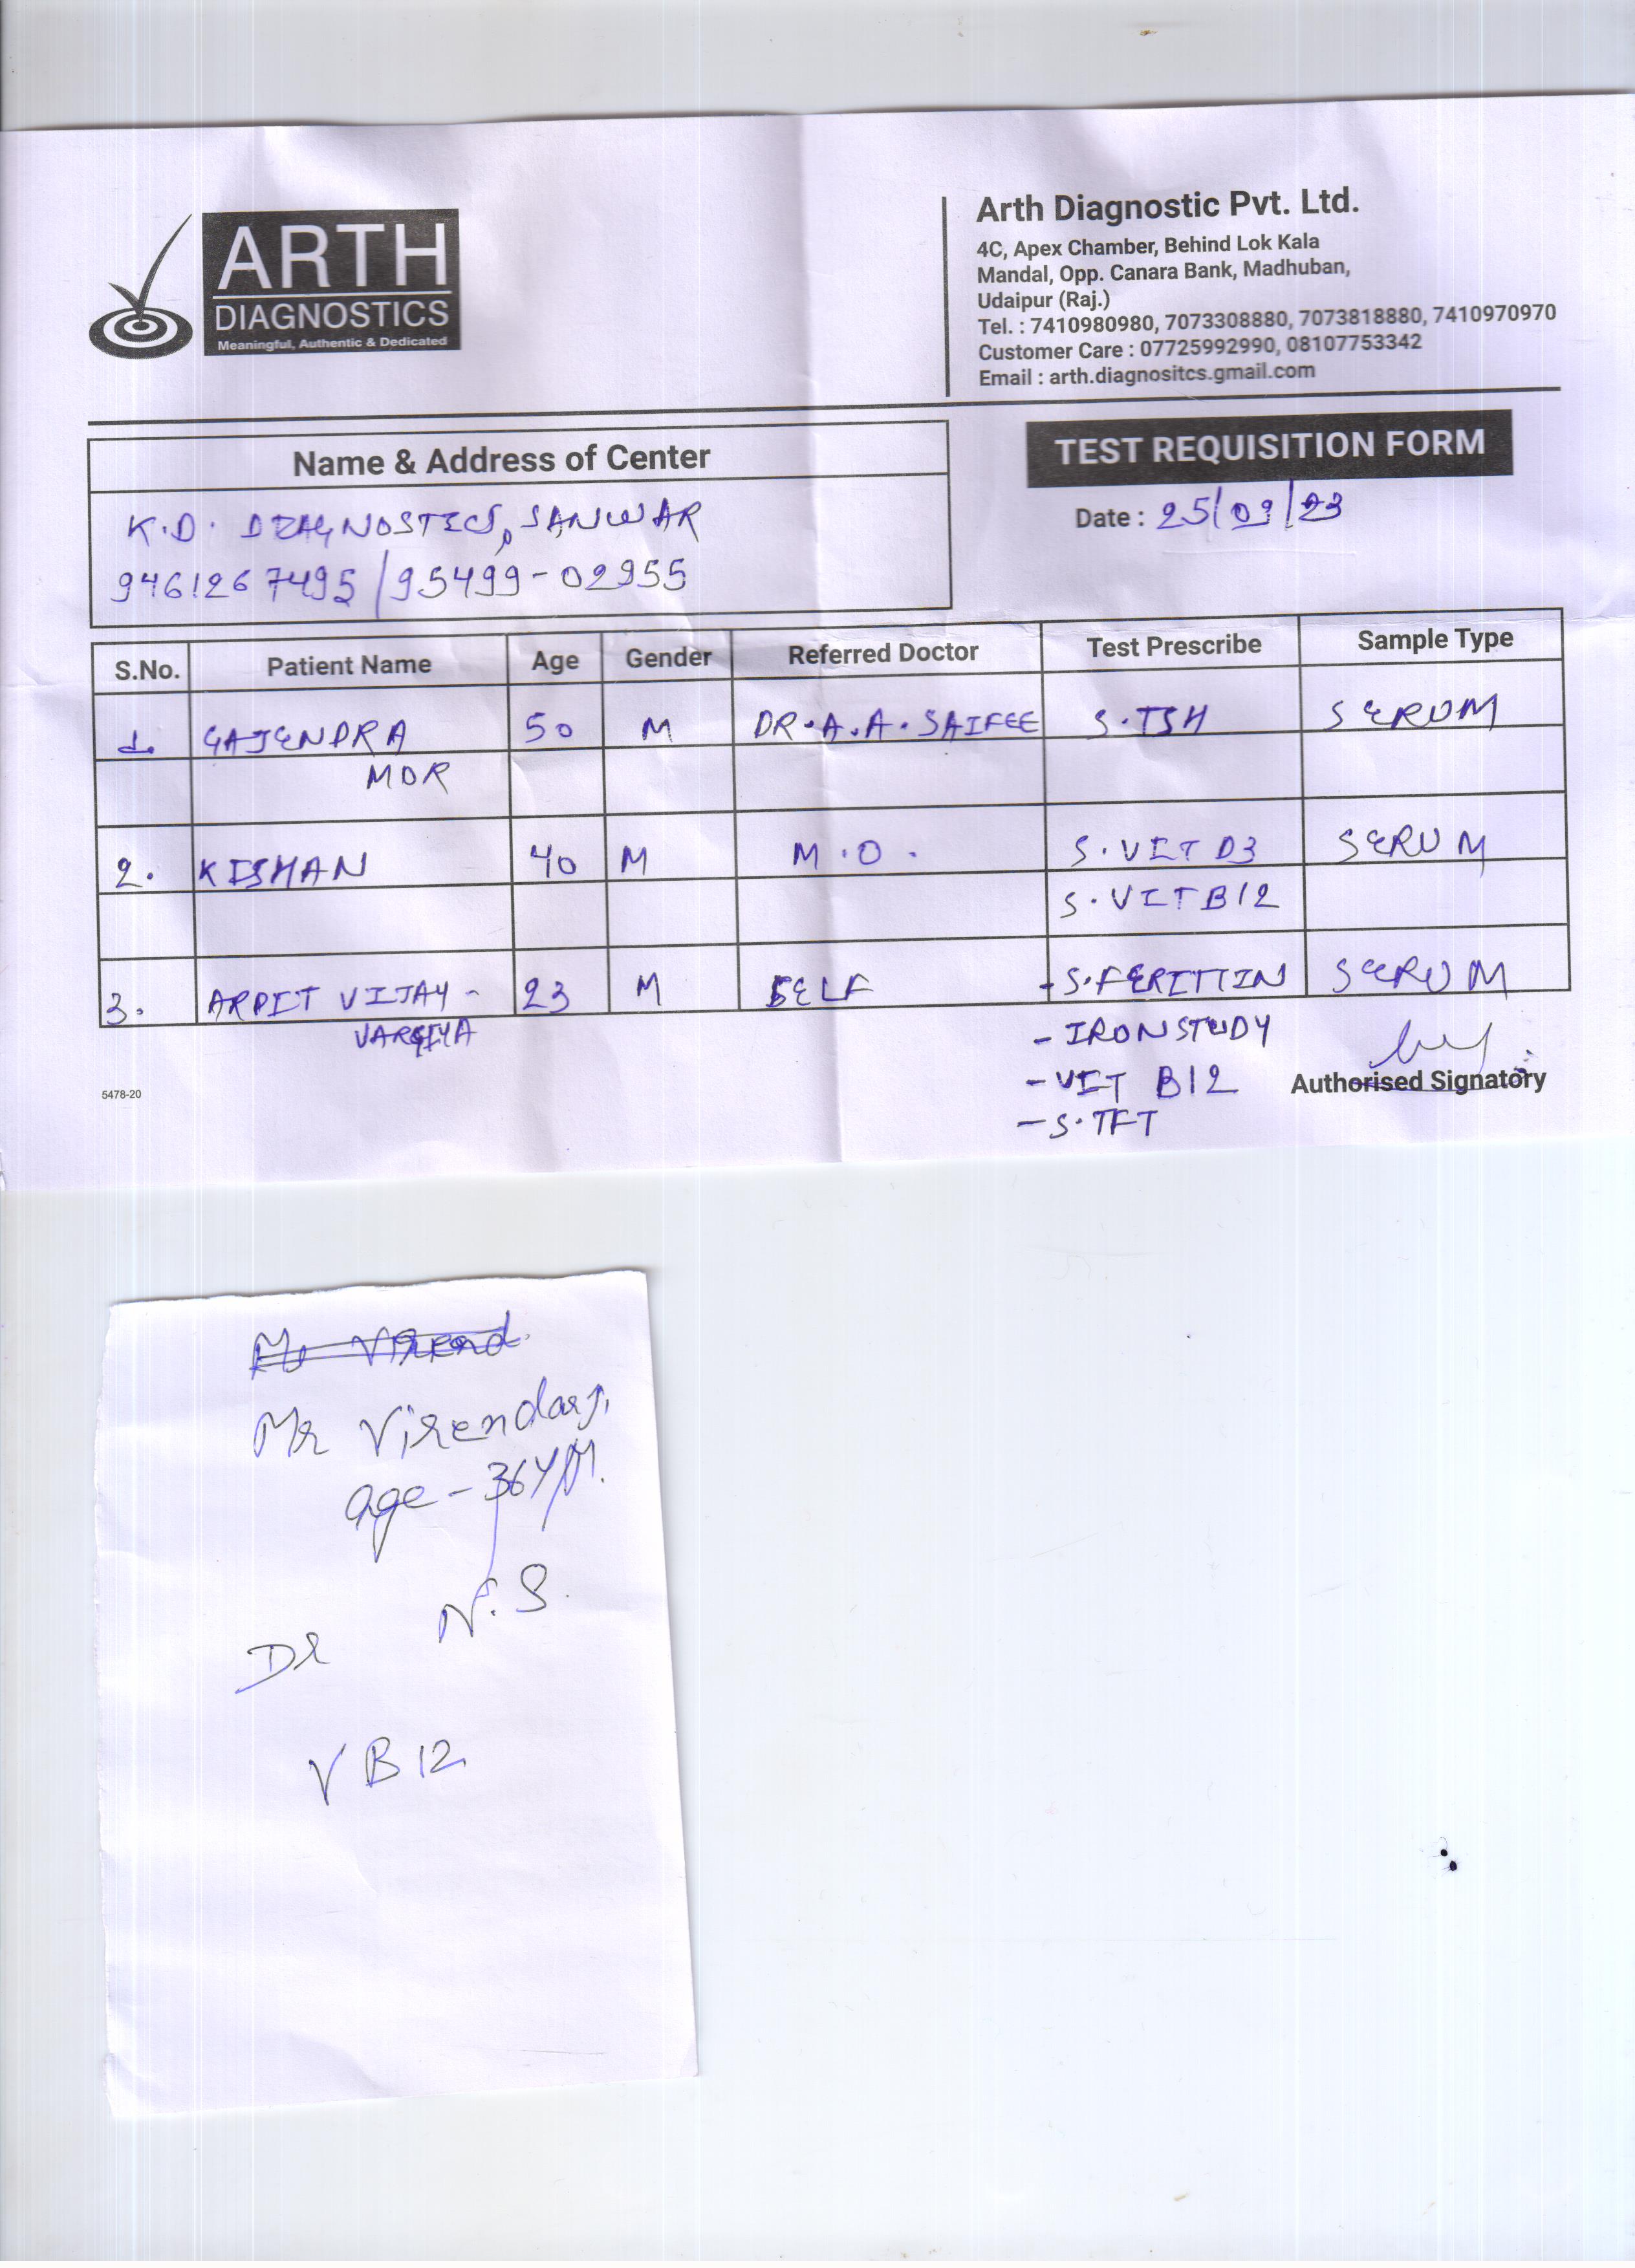 ARTH
DIAGNOSTICS
Meaningful, Authentic & Dedicated
Arth Diagnostic Pvt. Ltd.
4C, Apex Chamber, Behind Lok Kala
Mandal, Opp. Canara Bank, Madhuban,
Udaipur (Raj.)
Tel. : 7410980980, 7073308880, 7073818880, 7410970970
Customer Care : 07725992990, 08107753342
Email : arth.diagnositcs.gmail.com
Name & Address of Center
K.D. DIAGNOSTICS, SANWAR
9461267495/95499-02955
TEST REQUISITION FORM
Date : 25/09/23
S.No. Patient Name Age Gender Referred Doctor Test Prescribe Sample Type
1. GAJENDRA 50 M DR.A.A.SAIFEE S.TSH SERUM
MOR
2. KISHAN 40 M M.O. S.VIT D3 SERUM
S.VIT B12
3. ARPIT VIJAY- 23 M SELF -S.FERITTIN SERUM
VARGIYA
- IRON STUDY
- VIT B12
- S.TFT
Authorised Signatory
5478-20
Mr Virend.
Mr Virendar
age - 36Y/M.
Dr N.S.
V B12